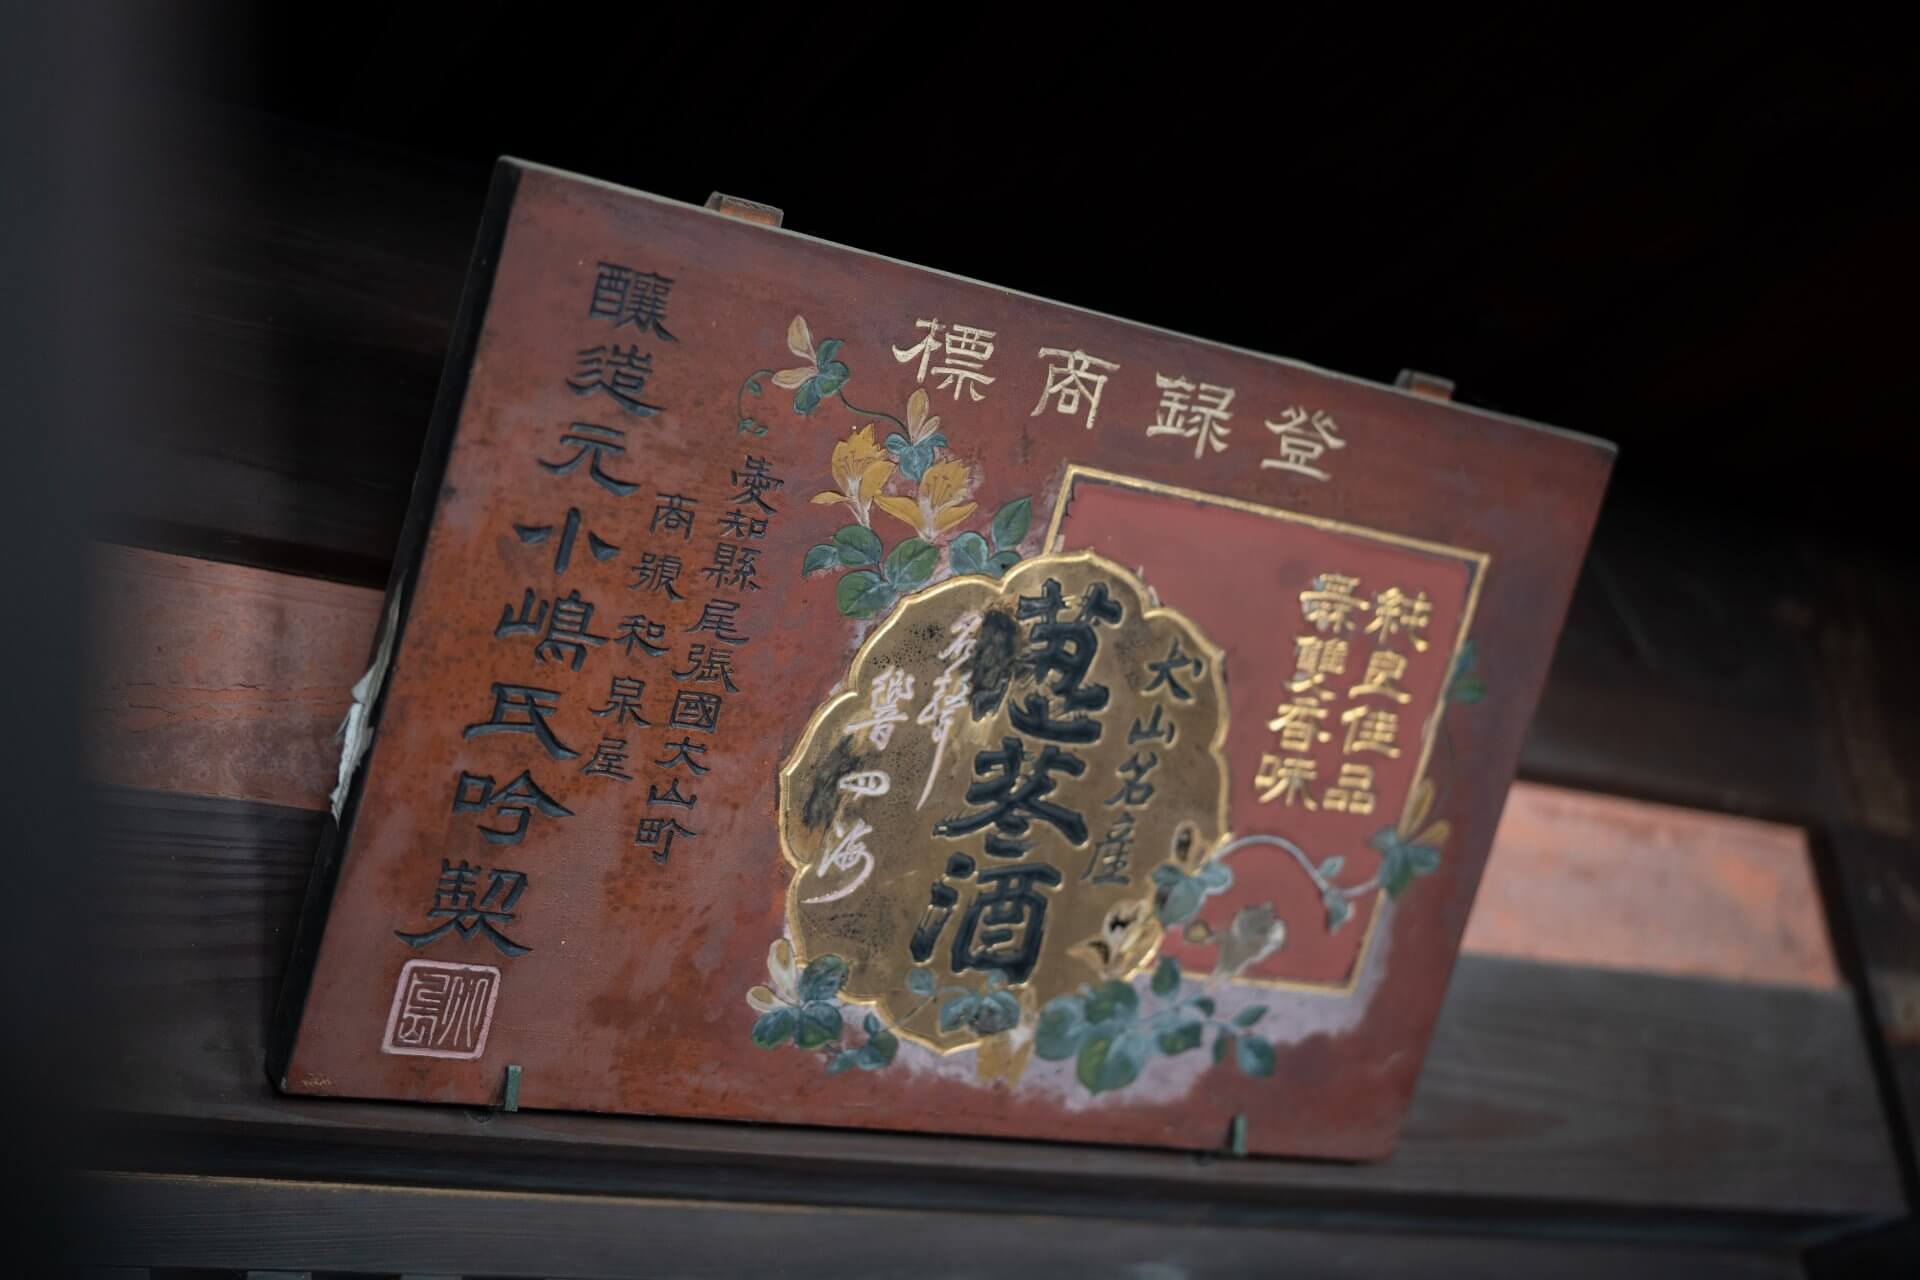 登録商標
純良佳品
無雙香味
犬山名産
荵苳酒
名聲
響四海
愛知縣尾張國犬山町
商號和泉屋
釀造元小嶋氏吟製